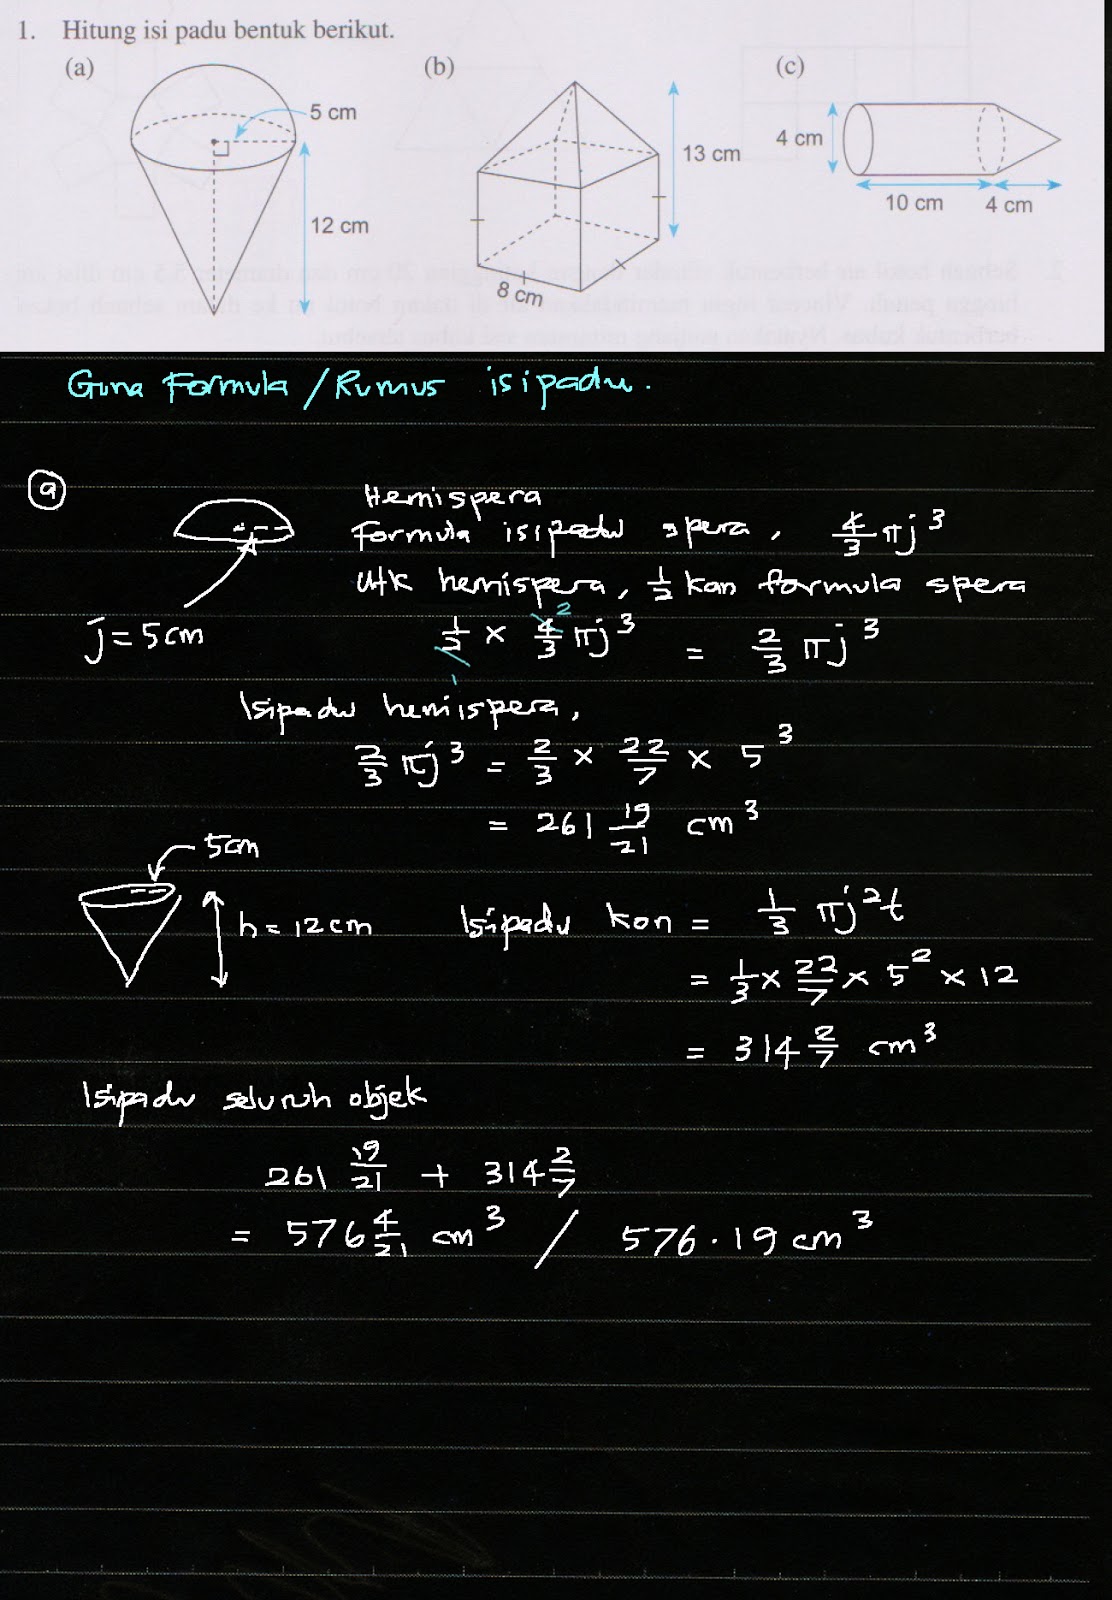 1. Hitung isi padu bentuk berikut.
(a) (b) (c)
5 cm
12 cm
13 cm
8 cm
4 cm
10 cm 4 cm
Guna Formula / Rumus isipadu.
(a)
Hemispera
Formula isipadu spera, 4/3 πj³
Utk hemispera, 1/2 kan formula spera
j = 5cm
1/2 × 4/3 πj³ = 2/3 πj³
2
1
Isipadu hemispera,
2/3 πj³ = 2/3 × 22/7 × 5³
= 261 19/21 cm³
5cm
h = 12cm
Isipadu kon = 1/3 πj²t
= 1/3 × 22/7 × 5² × 12
= 314 2/7 cm³
Isipadu seluruh objek
261 19/21 + 314 2/7
= 576 4/21 cm³ / 576.19 cm³